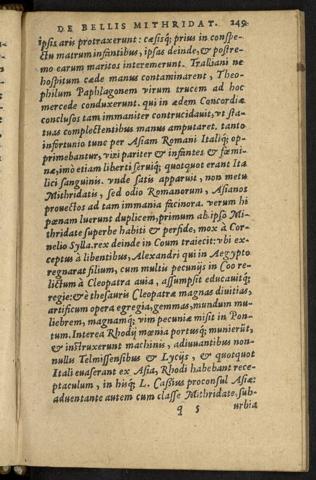 DE BELLIS MITHRIDAT. 249.
ipsis aris protraxerunt: cæsisq́; prius in conspe-
ctu matrum infantibus, ipsas deinde, & postre-
mo earum maritos interemerunt. Tralliani ne
hospitum cæde manus contaminarent, Theo-
philum Paphlagonem virum trucem ad hoc
mercede conduxerunt. qui in ædem Concordiæ
conclusos tam immaniter contrucidauit, vt sta-
tuas complectentibus manus amputaret. tanto
infortunio tunc per Asiam Romani Italiq́; op-
primebantur, viri pariter & infantes & fœmi-
næ, imò etiam liberti seruiq́; quotquot erant Ita
lici sanguinis. vnde satis apparuit, non metu
Mithridatis, sed odio Romanorum, Asianos
prouectos ad tam immania facinora. verum hi
pœnam luerunt duplicem, primum ab ipso Mi-
thridate superbe habiti & perfide, mox à Cor-
nelio Sylla. rex deinde in Coum traiecit: vbi ex-
ceptus à libentibus, Alexandri qui in Aegypto
regnarat filium, cum multis pecunijs in Coo re
lictum à Cleopatra auia, assumpsit educauitq́;
regiè: & è thesauris Cleopatræ magnas diuitias,
artificum opera egregia, gemmas, mundum mu-
liebrem, magnamq́; vim pecuniæ misit in Pon-
tum. Interea Rhodij mœnia portusq́; munierūt,
& instruxerunt machinis, adiuuantibus non-
nullis Telmissensibus & Lycijs, & quotquot
Itali euaserant ex Asia, Rhodi habebant rece-
ptaculum, in hisq́; L. Cassius proconsul Asiæ:
aduentante autem cum classe Mithridate, sub-
q 5 urbia